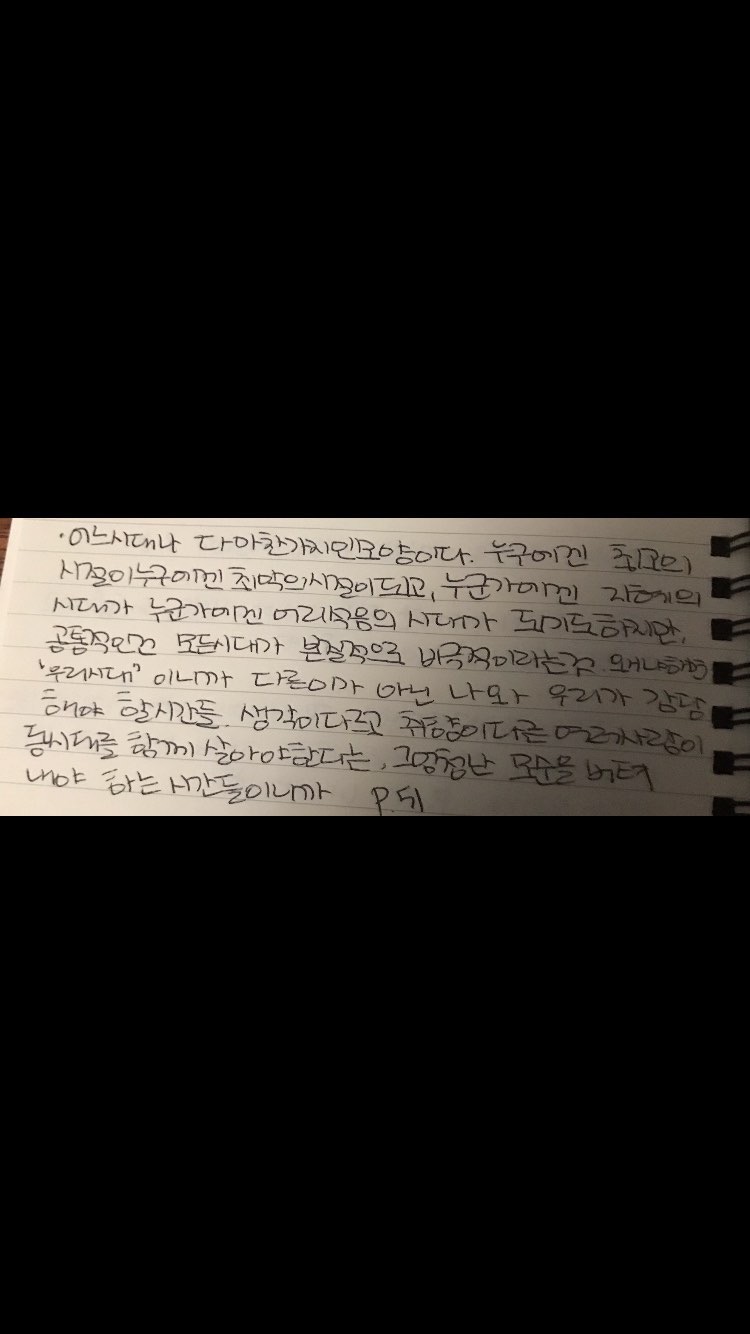 ·어느시대나 다 마찬가지인모양이다. 누구에겐 최고의
시절이 누구에겐 최악의 시절이 되고, 누군가에겐 지혜의
시대가 누군가에겐 어리석음의 시대가 되기도하지만,
공통적인건 모든시대가 본질적으로 비극적이라는것. 왜냐하면
'우리시대' 이니까 다른이가 아닌 나와 우리가 감당
해야 할시간들. 생각이다르고 취향이다른 여러사람이
동시대를 함께 살아야한다는, 그엄청난 모순을 버텨
내야 하는 시간들이니까 P.51